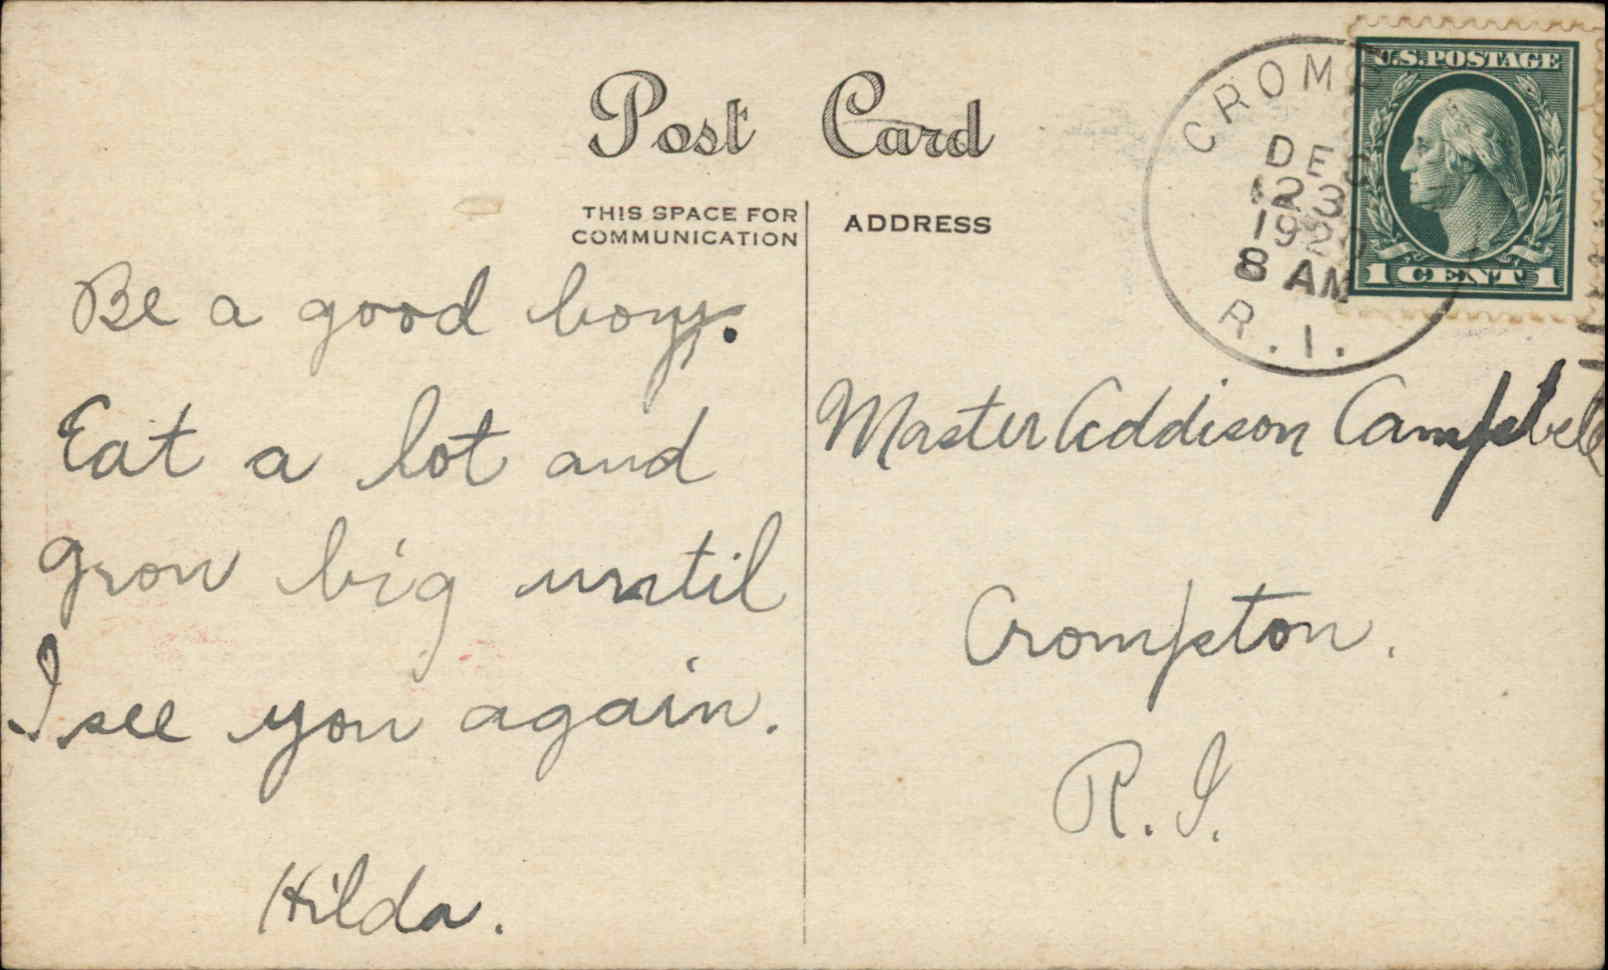 Post Card
THIS SPACE FOR
COMMUNICATION
ADDRESS
CROMP
DEC
23
1920
8 AM
R.I.
U.S.POSTAGE
1 CENT 1
Be a good boy.
Eat a lot and
grow big until
I see you again.
Hilda.
Master Addison Campbell
Crompton.
R. I.